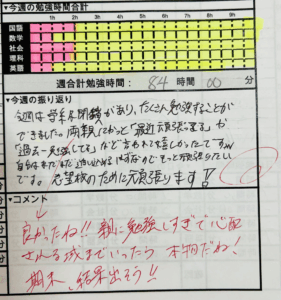 ▼今週の勉強時間合計
1h 2h 3h 4h 5h 6h 7h 8h 9h
国語
数学
社会
理科
英語
週合計勉強時間： 84 時間 00 分
▼今週の振り返り
今週は学年閉鎖があり、たくさん勉強することが
できました。両親にやっと「最近頑張ってる」や
「過去一勉強してる」などと言われて嬉しかったですが
自分はまだまだ追い込めるはずなのでもっと頑張りたい
です。希望校のために頑張ります!!
▼コメント
良かったね!! 親に勉強しすぎで心配
される域までいったら本物だね!
期末、結果出そう!!